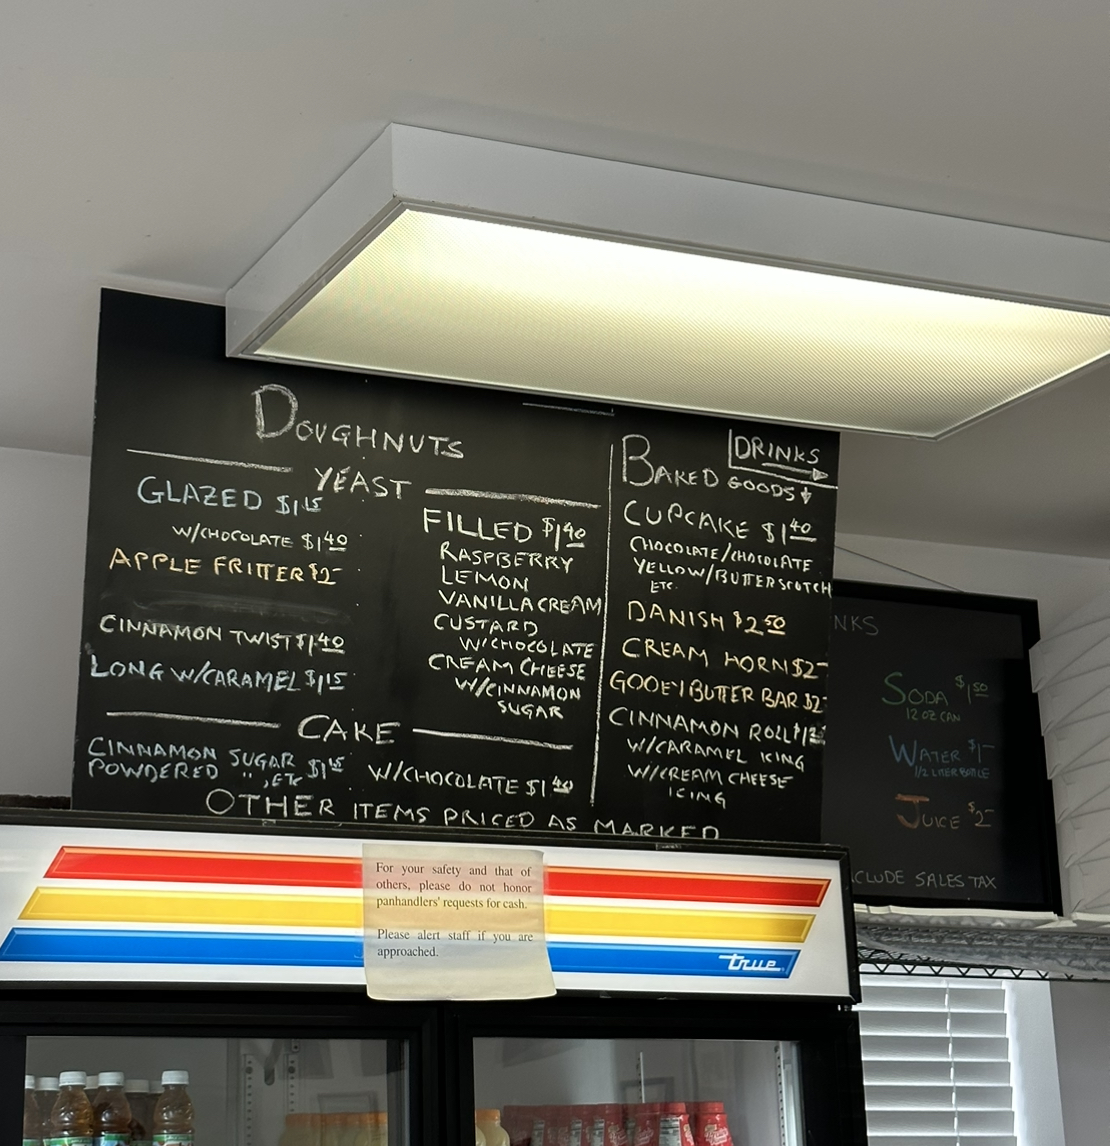 DOUGHNUTS
YEAST
GLAZED $1.15
W/CHOCOLATE $1.40
APPLE FRITTER $2-
CINNAMON TWIST $1.40
LONG W/CARAMEL $1.15
FILLED $1.40
RASPBERRY
LEMON
VANILLA CREAM
CUSTARD
W/CHOCOLATE
CREAM CHEESE
W/CINNAMON
SUGAR
CAKE
CINNAMON SUGAR $1.15
POWDERED " ", ETC
W/CHOCOLATE $1.40
OTHER ITEMS PRICED AS MARKED
DRINKS
BAKED GOODS
CUPCAKE $1.40
CHOCOLATE/CHOCOLATE
YELLOW/BUTTERSCOTCH
ETC.
DANISH $2.50
CREAM HORN $2-
GOOEY BUTTER BAR $2-
CINNAMON ROLL
W/CARAMEL ICING
W/CREAM CHEESE
ICING
NKS
SODA $1.50
12 OZ CAN
WATER $1-
1/2 LITER BOTTLE
JUICE $2-
CLUDE SALES TAX
For your safety and that of
others, please do not honor
panhandlers' requests for cash.
Please alert staff if you are
approached.
true